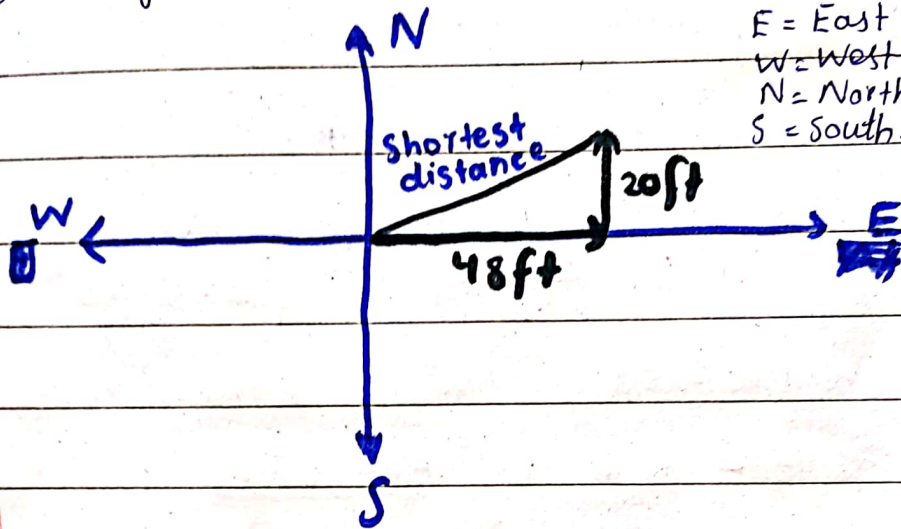 N
E = East
W = West
N = North
S = South.
shortest
distance
20ft
W
E
48ft
S